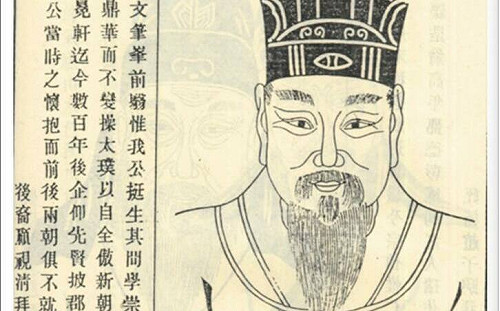 文筆峯前翳惟我公挺生其問學崇
鼎華而不變操太璞以自全傲新朝
冕軒迄今數百年後企仰先賢披郡
公當時之懷抱而前後兩朝俱不就
後裔視清拜